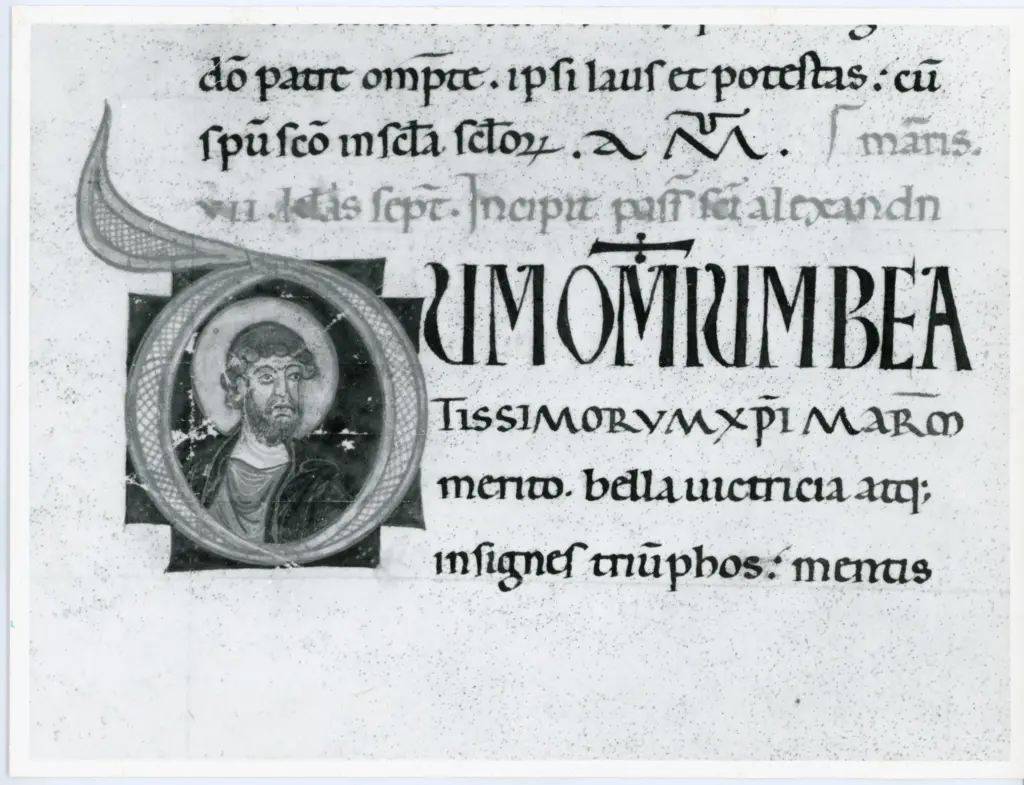 dō patre omp̄te. ipsi laus et potestas: cū
spū scō in scl̄a scl̄oꝝ. a M̄.  ſ mār̄is.
vii. Idās sept̄. Incipit pass̄ sc̄i alexandri
DUM OM̄IUM BEA
TISSIMORVM XP̄I MAR̄M
merito. bella uictricia atq;
insignes triūphos: mentis